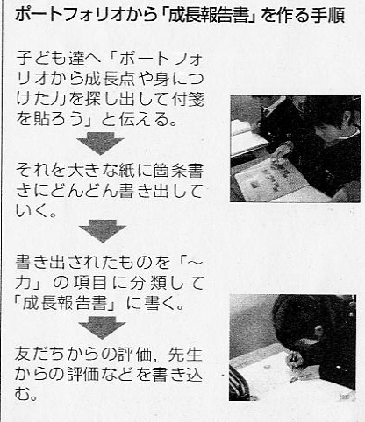 ポートフォリオから「成長報告書」を作る手順
子ども達へ「ポートフォ
リオから成長点や身につ
けた力を探し出して付箋
を貼ろう」と伝える。
それを大きな紙に箇条書
きにどんどん書き出して
いく。
書き出されたものを「～
力」の項目に分類して
「成長報告書」に書く。
友だちからの評価，先生
からの評価などを書き込
む。